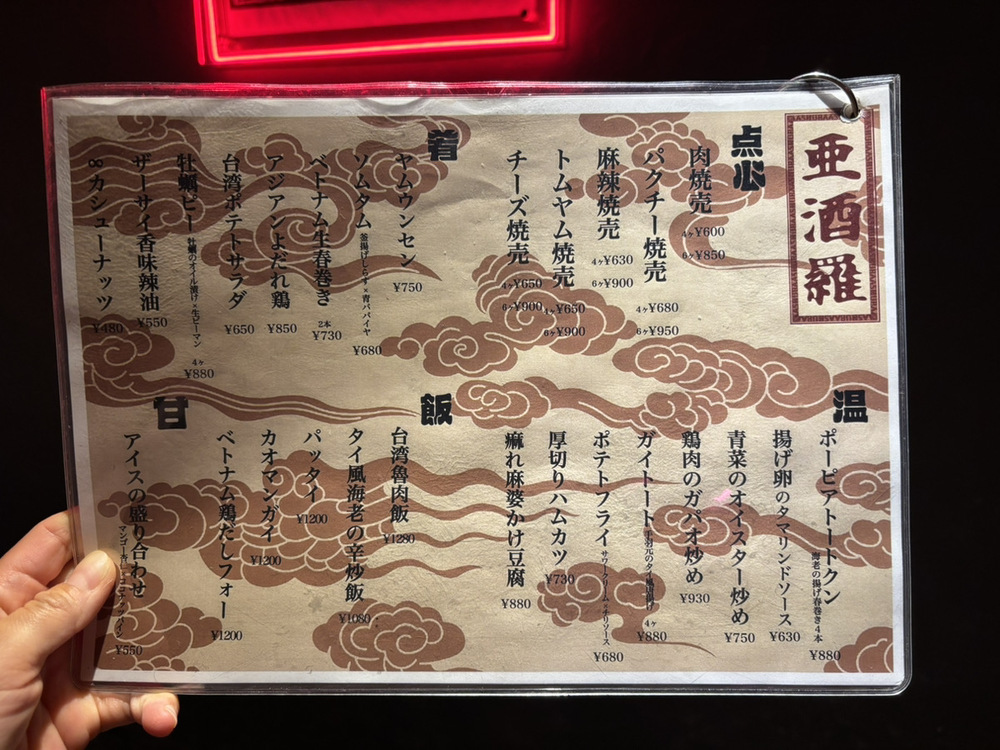 亜酒羅
点心
肉焼売
4ヶ¥600
6ヶ¥850
パクチー焼売
4ヶ¥680
6ヶ¥950
麻辣焼売
4ヶ¥630
6ヶ¥900
トムヤム焼売
4ヶ¥650
6ヶ¥900
チーズ焼売
4ヶ¥650
6ヶ¥900
肴
ヤムウンセン
¥750
ソムタム 釜揚げしらす×青パパイヤ
¥680
ベトナム生春巻き
2本
¥730
アジアンよだれ鶏
¥850
台湾ポテトサラダ
¥650
牡蠣ピー 牡蠣のオイル漬け×生ピーマン
4ヶ
¥880
ザーサイ香味辣油
¥550
∞カシューナッツ
¥480
温
ポーピアトートクン 海老の揚げ春巻き4本
¥880
揚げ卵のタマリンドソース
¥630
青菜のオイスター炒め
¥750
鶏肉のガパオ炒め
¥930
ガイトート 手羽元のタイ
4ヶ
¥880
ポテトフライ サワークリーム×チリソース
¥680
厚切りハムカツ
¥730
痲れ麻婆かけ豆腐
¥880
飯
台湾魯肉飯
¥1280
タイ風海老の辛炒飯
¥1080
パッタイ
¥1200
カオマンガイ
¥1200
ベトナム鶏だしフォー
¥1200
甘
アイスの盛り合わせ
¥550